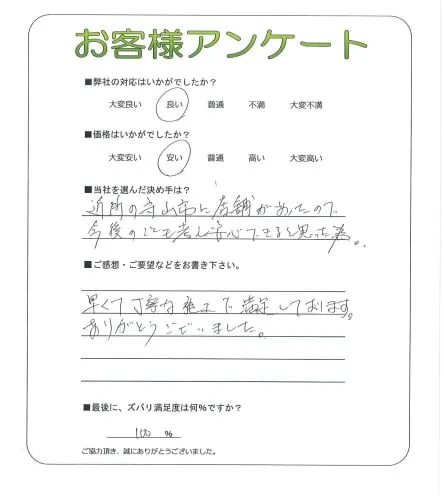 お客様アンケート
■弊社の対応はいかがでしたか？
大変良い 良い 普通 不満 大変不満
■価格はいかがでしたか？
大変安い 安い 普通 高い 大変高い
■当社を選んだ決め手は？
近所の守山市に店舗があったので
今後のことも考え安心できると思った為。
■ご感想・ご要望などをお書き下さい。
早くて丁寧な施工で満足しております。
ありがとうございました。
■最後に、ズバリ満足度は何％ですか？
100 %
ご協力頂き、誠にありがとうございました。